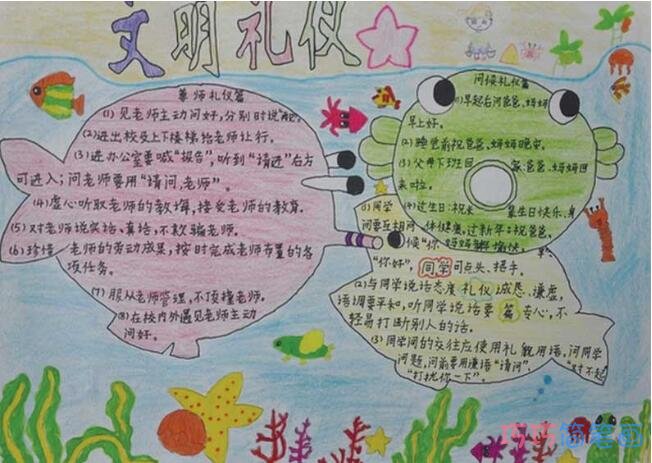 文明礼仪
尊师礼仪篇
(1)见老师主动问好,分别时说"再见"。
(2)进出校及上下楼梯给老师让行。
(3)进办公室要喊"报告",听到"请进"后方
可进入;问老师要用"请问,老师"。
(4)虚心听取老师的教诲,接受老师的教育。
(5)对老师说实话、真话,不欺骗老师。
(6)珍惜老师的劳动成果,按时完成老师布置的各
项任务。
(7)服从老师管理,不顶撞老师。
(8)在校内外遇见老师主动
问好。
问候礼仪篇
(1)早起后问爸爸、妈妈
早上好。
(2)睡觉前祝爸爸、妈妈晚安。
(3)父母下班回家,爸爸、妈妈回
来啦。
(4)过生日:祝长 辈生日快乐、身
体健康,过新年:祝爸爸、
妈妈 愉快。
同学
(1)同学
间要互相问
候"你
"你好",同学可点头、招手。
(2)与同学说话态度礼仪诚恳、谦虚,
语调要平和,听同学说话要篇专心,不
轻易打断别人的话。
(3)同学间的交往应使用礼貌用语,问同学
问题,问前要用谦语"请问"。"对不起"
"打扰你一下"。
巧巧简笔画